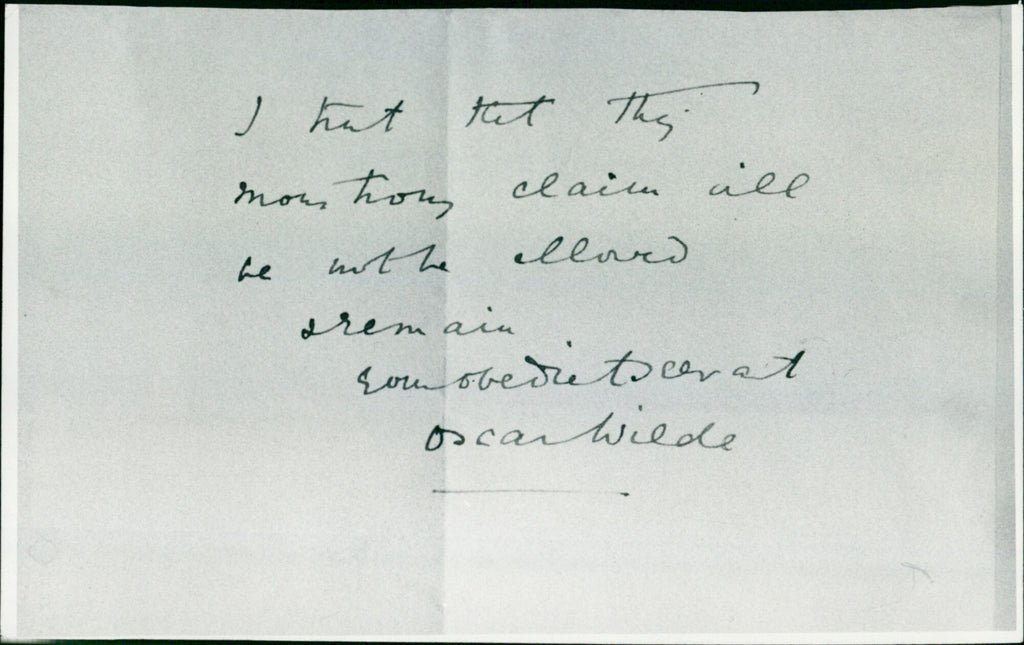 I trust that this
monstrous claim will
be not be allowed
I remain
your obedient servant
Oscar Wilde